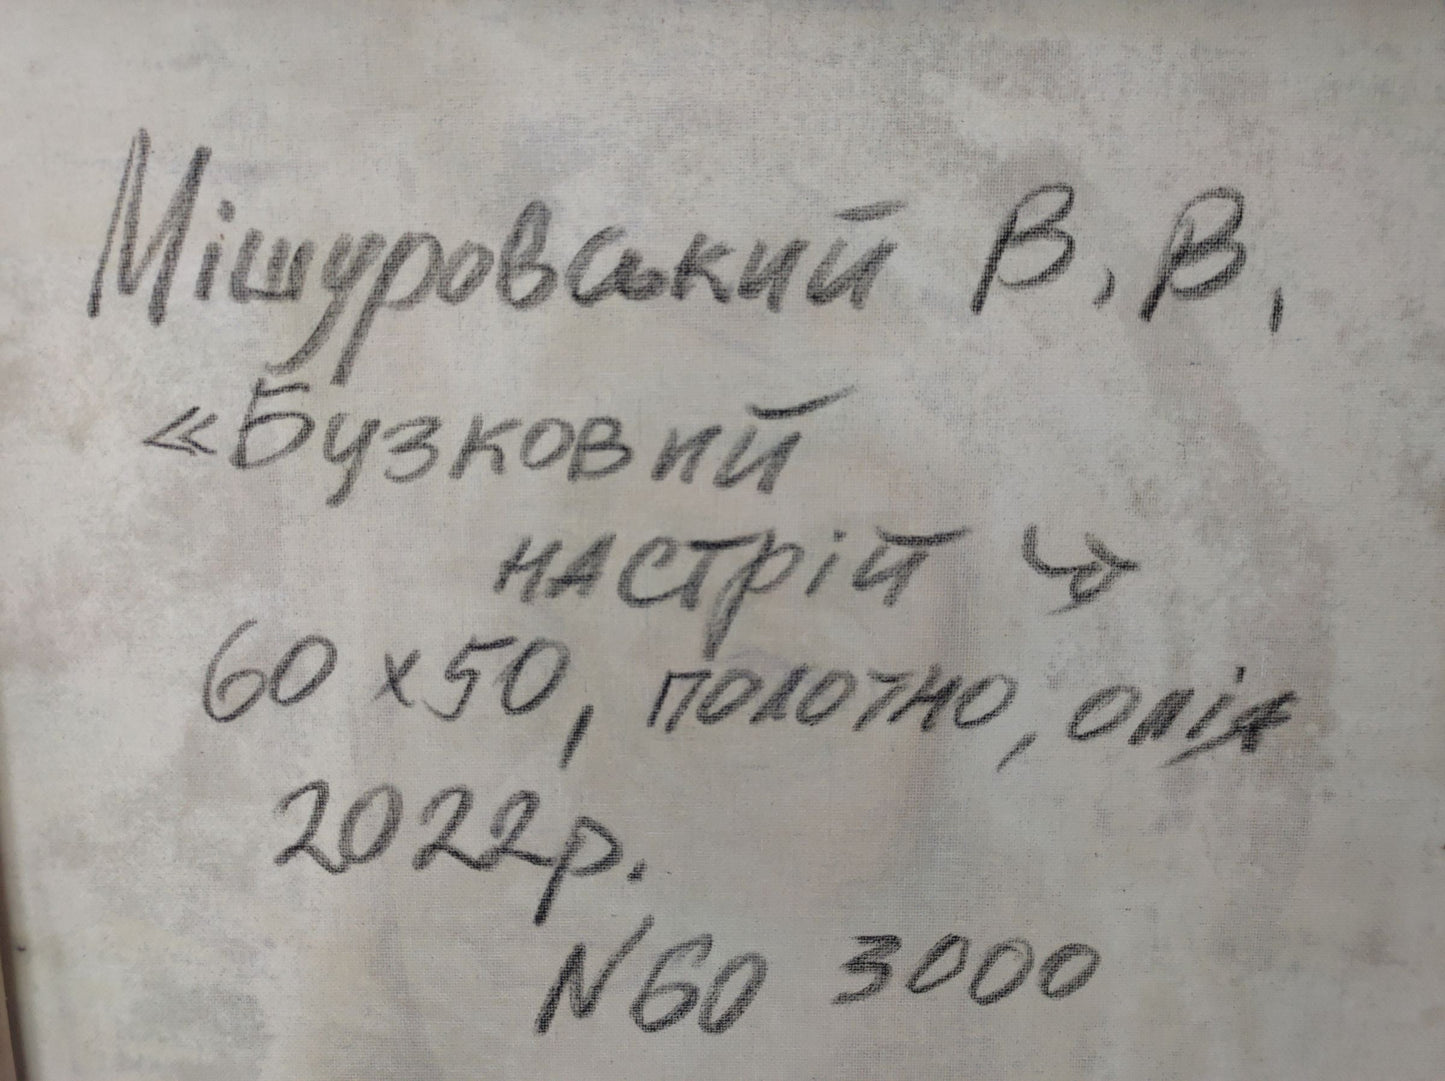 Мішуровський В. В.
«Бузковий
настрій»
60 х 50, полотно, олія
2022р.
N60 3000